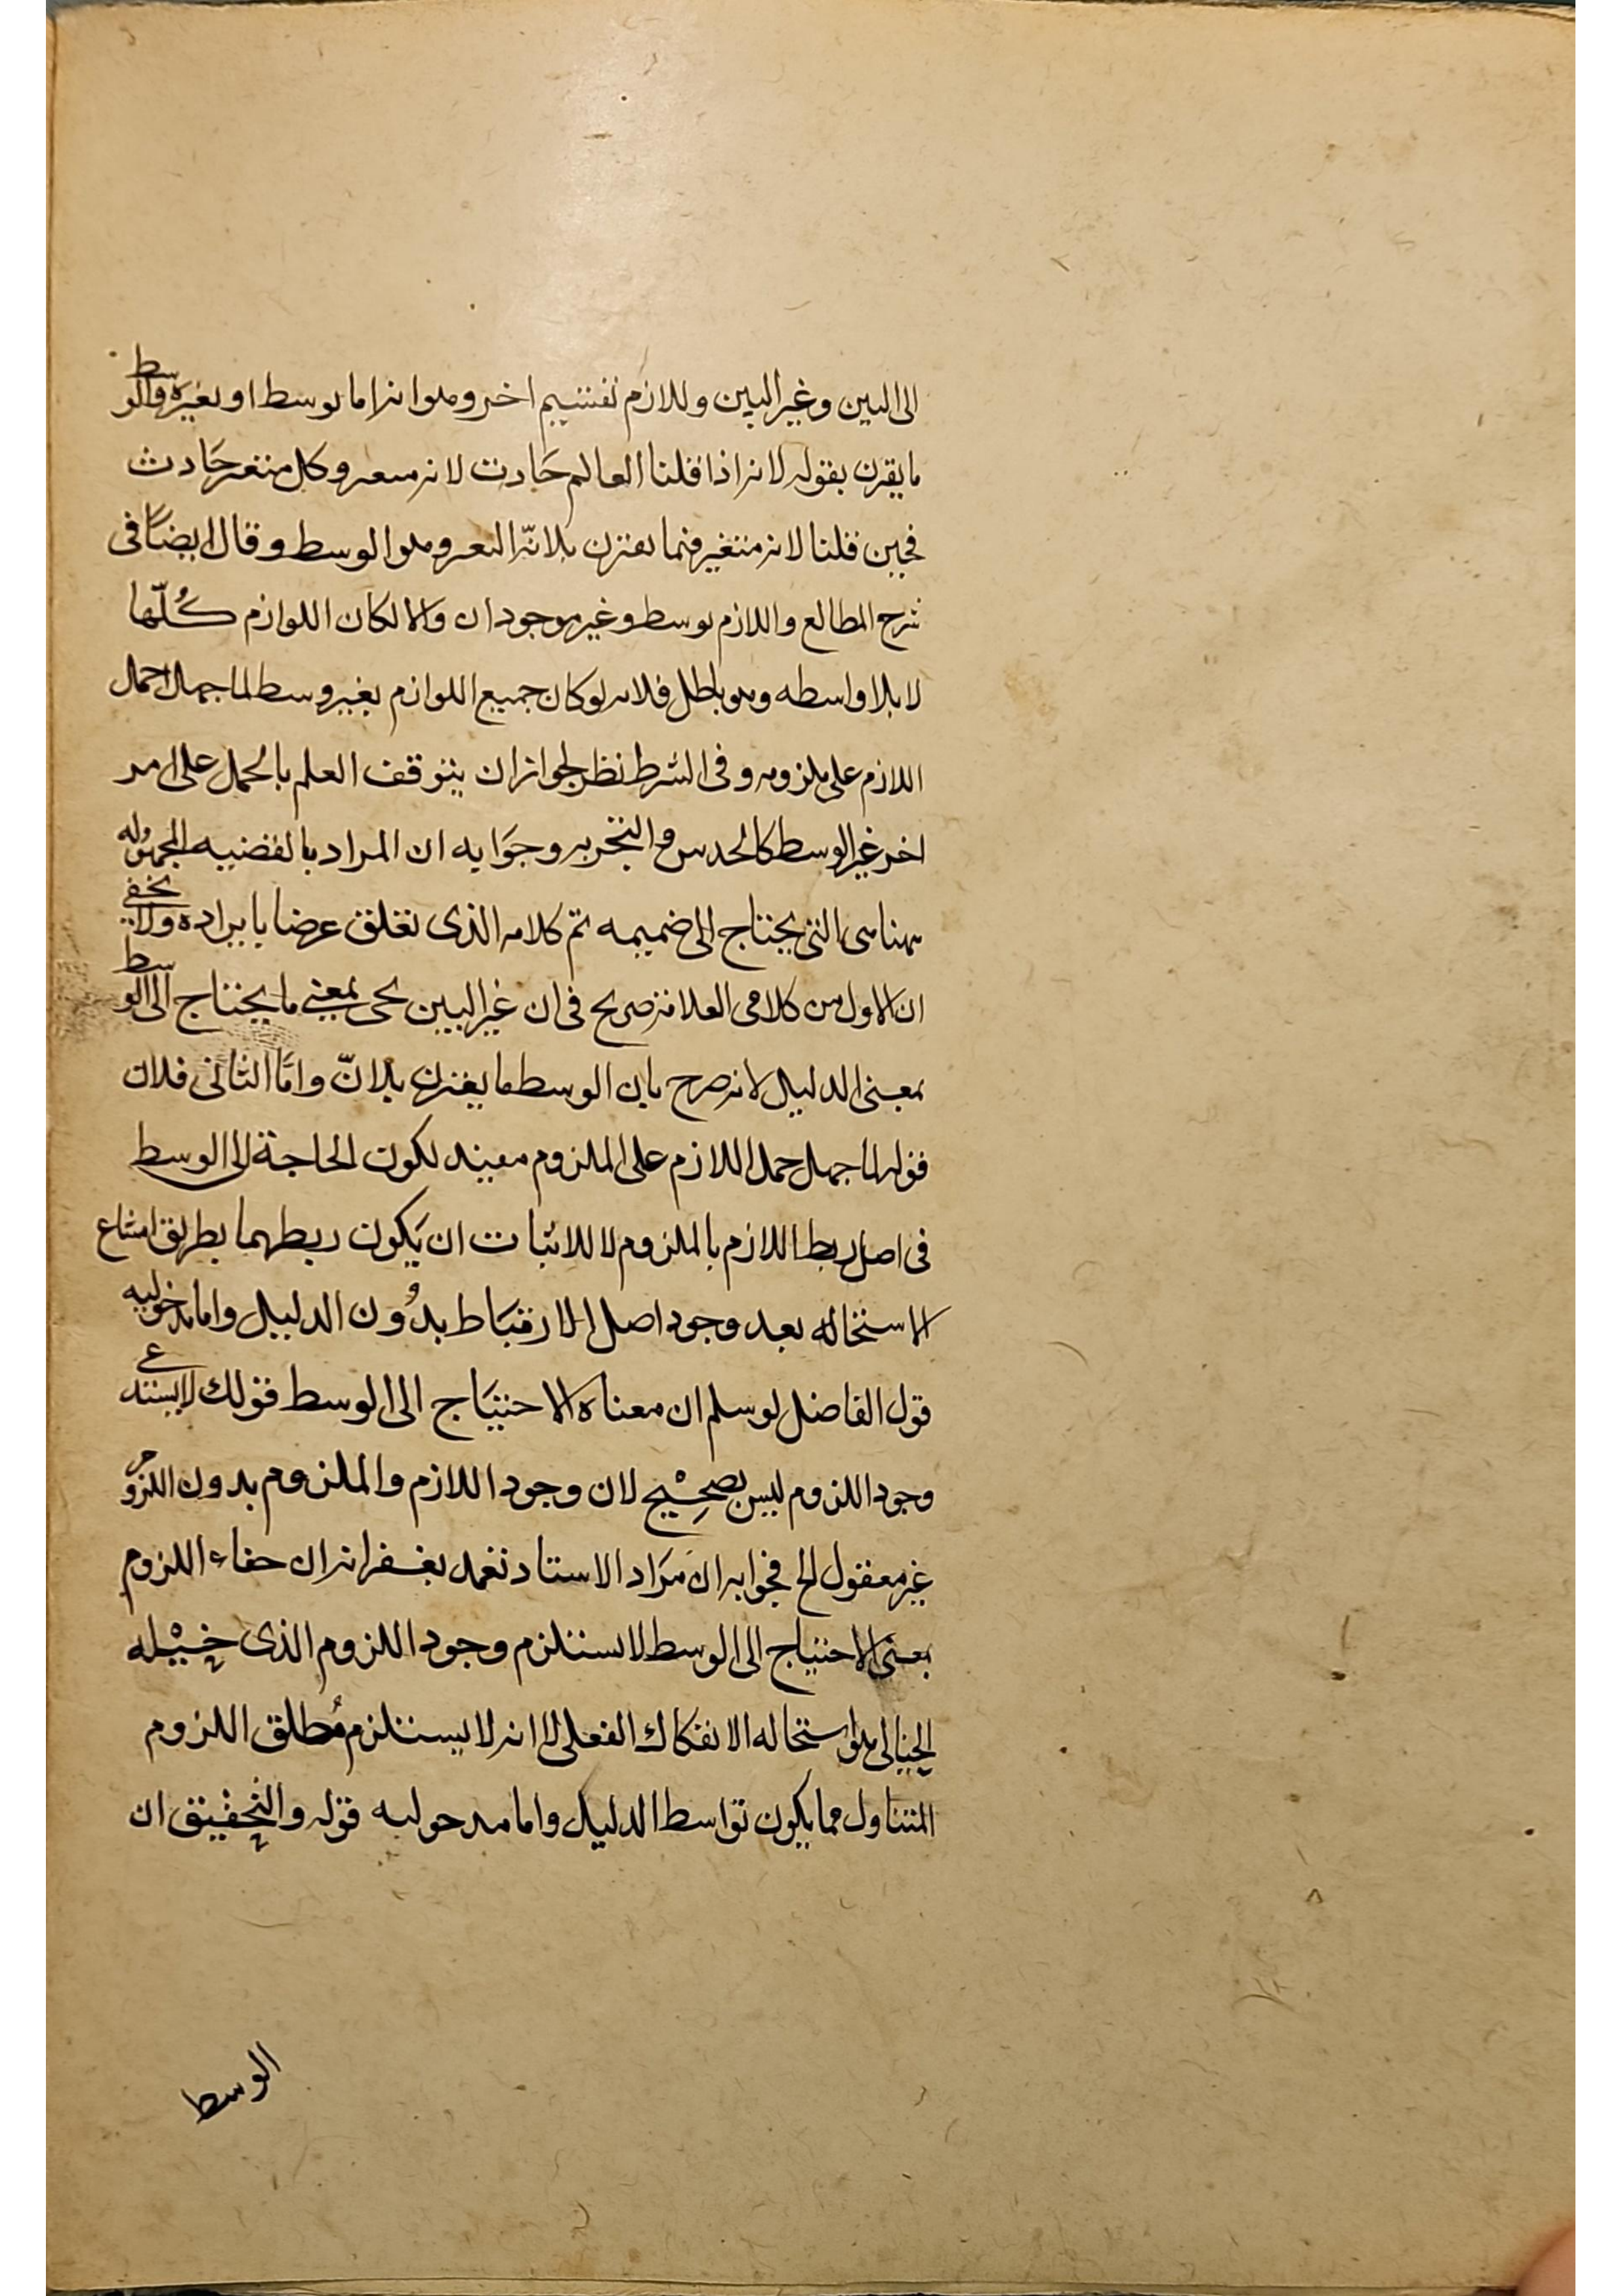 الى البين وغير البين وللازم تقسيم اخر وهو انه اما بوسط او بغيره والوسط
ما يقرن بقوله لانه اذا قلنا العالم حَادث لانه متغير وكل متغير حَادث
فحين قلنا لانه متغير فما يقترن بلانّه التغير وهو الوسط وقال ايضًا فى
شرح المطالع واللازم بوسط وغير موجودان والا لكان اللوازم كُلّها
لا بلا واسطه وهو باطل فلانه لو كان جميع اللوازم بغير وسط لما جهل حمل
اللازم على ملزومه وفى الشرط نظر لجوازان يتوقف العلم بالحمل على امر
اخر غير الوسط كالحدس والتجربه وجوَابه ان المراد بالقضيه المجهوله
ههنا هى التى يحتاج الى ضميمه تم كلامه الذى تعلق عرضنا بايراده ولا يخفى
ان الاول من كلامى العلامة صريح فى ان غير البين بمعنى ما يحتاج الى الوسط
بمعنى الدليل لانه صرح بان الوسط ما يقترن بلانّ وامَّا الثانى فلان
قوله لما جهل حمل اللازم على الملزوم مفيد لكون الحاجة الى الوسط
فى اصل ربط اللازم بالملزوم لا للاثبات ان يَكون ربطهما بطريق امتناع
الاستحاله بعد وجود اصل الارتبَاط بدُون الدليل واما مدخوليه
قول الفاضل لو سلم ان معناه الاحتيَاج الى الوسط فقولك لا يستدعى
وجود اللزوم ليس بصحِيْح لان وجود اللازم والملزوم بدون اللزوم
غير معقول الخ فجوابه ان مرَاد الاستاد تغمد بغفرانه ان خفاء اللزوم
بمعنى الاحتياج الى الوسط لا يستلزم وجود اللزوم الذى خيْله
الخيالى هو استحاله الانفكاك الفعلى لا انه لا يستلزم مُطلق اللزوم
المتناول مما يكون تواسط الدليل واما مدخوليه قوله والتحقيق ان
الوسط